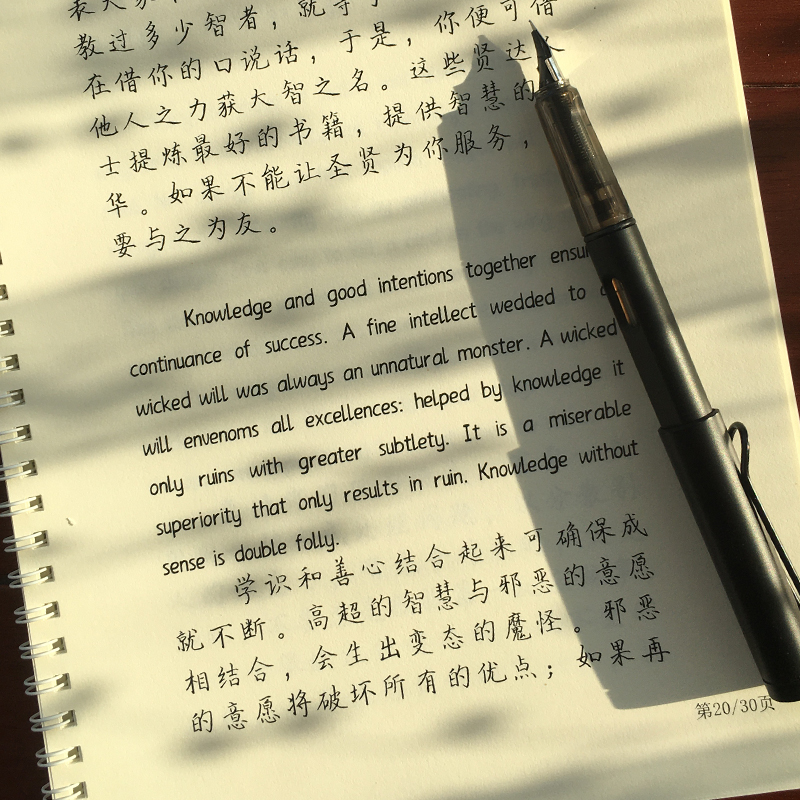 教过多少智者，就等于
在借你的口说话，于是，你便可借
他人之力获大智之名。这些贤达人
士提炼最好的书籍，提供智慧的
华。如果不能让圣贤为你服务，
要与之为友。
Knowledge and good intentions together ensure
continuance of success. A fine intellect wedded to a
wicked will was always an unnatural monster. A wicked
will envenoms all excellences: helped by knowledge it
only ruins with greater subtlety. It is a miserable
superiority that only results in ruin. Knowledge without
sense is double folly.
学识和善心结合起来可确保成
就不断。高超的智慧与邪恶的意愿
相结合，会生出变态的魔怪。邪恶
的意愿将破坏所有的优点；如果再
第20/30页